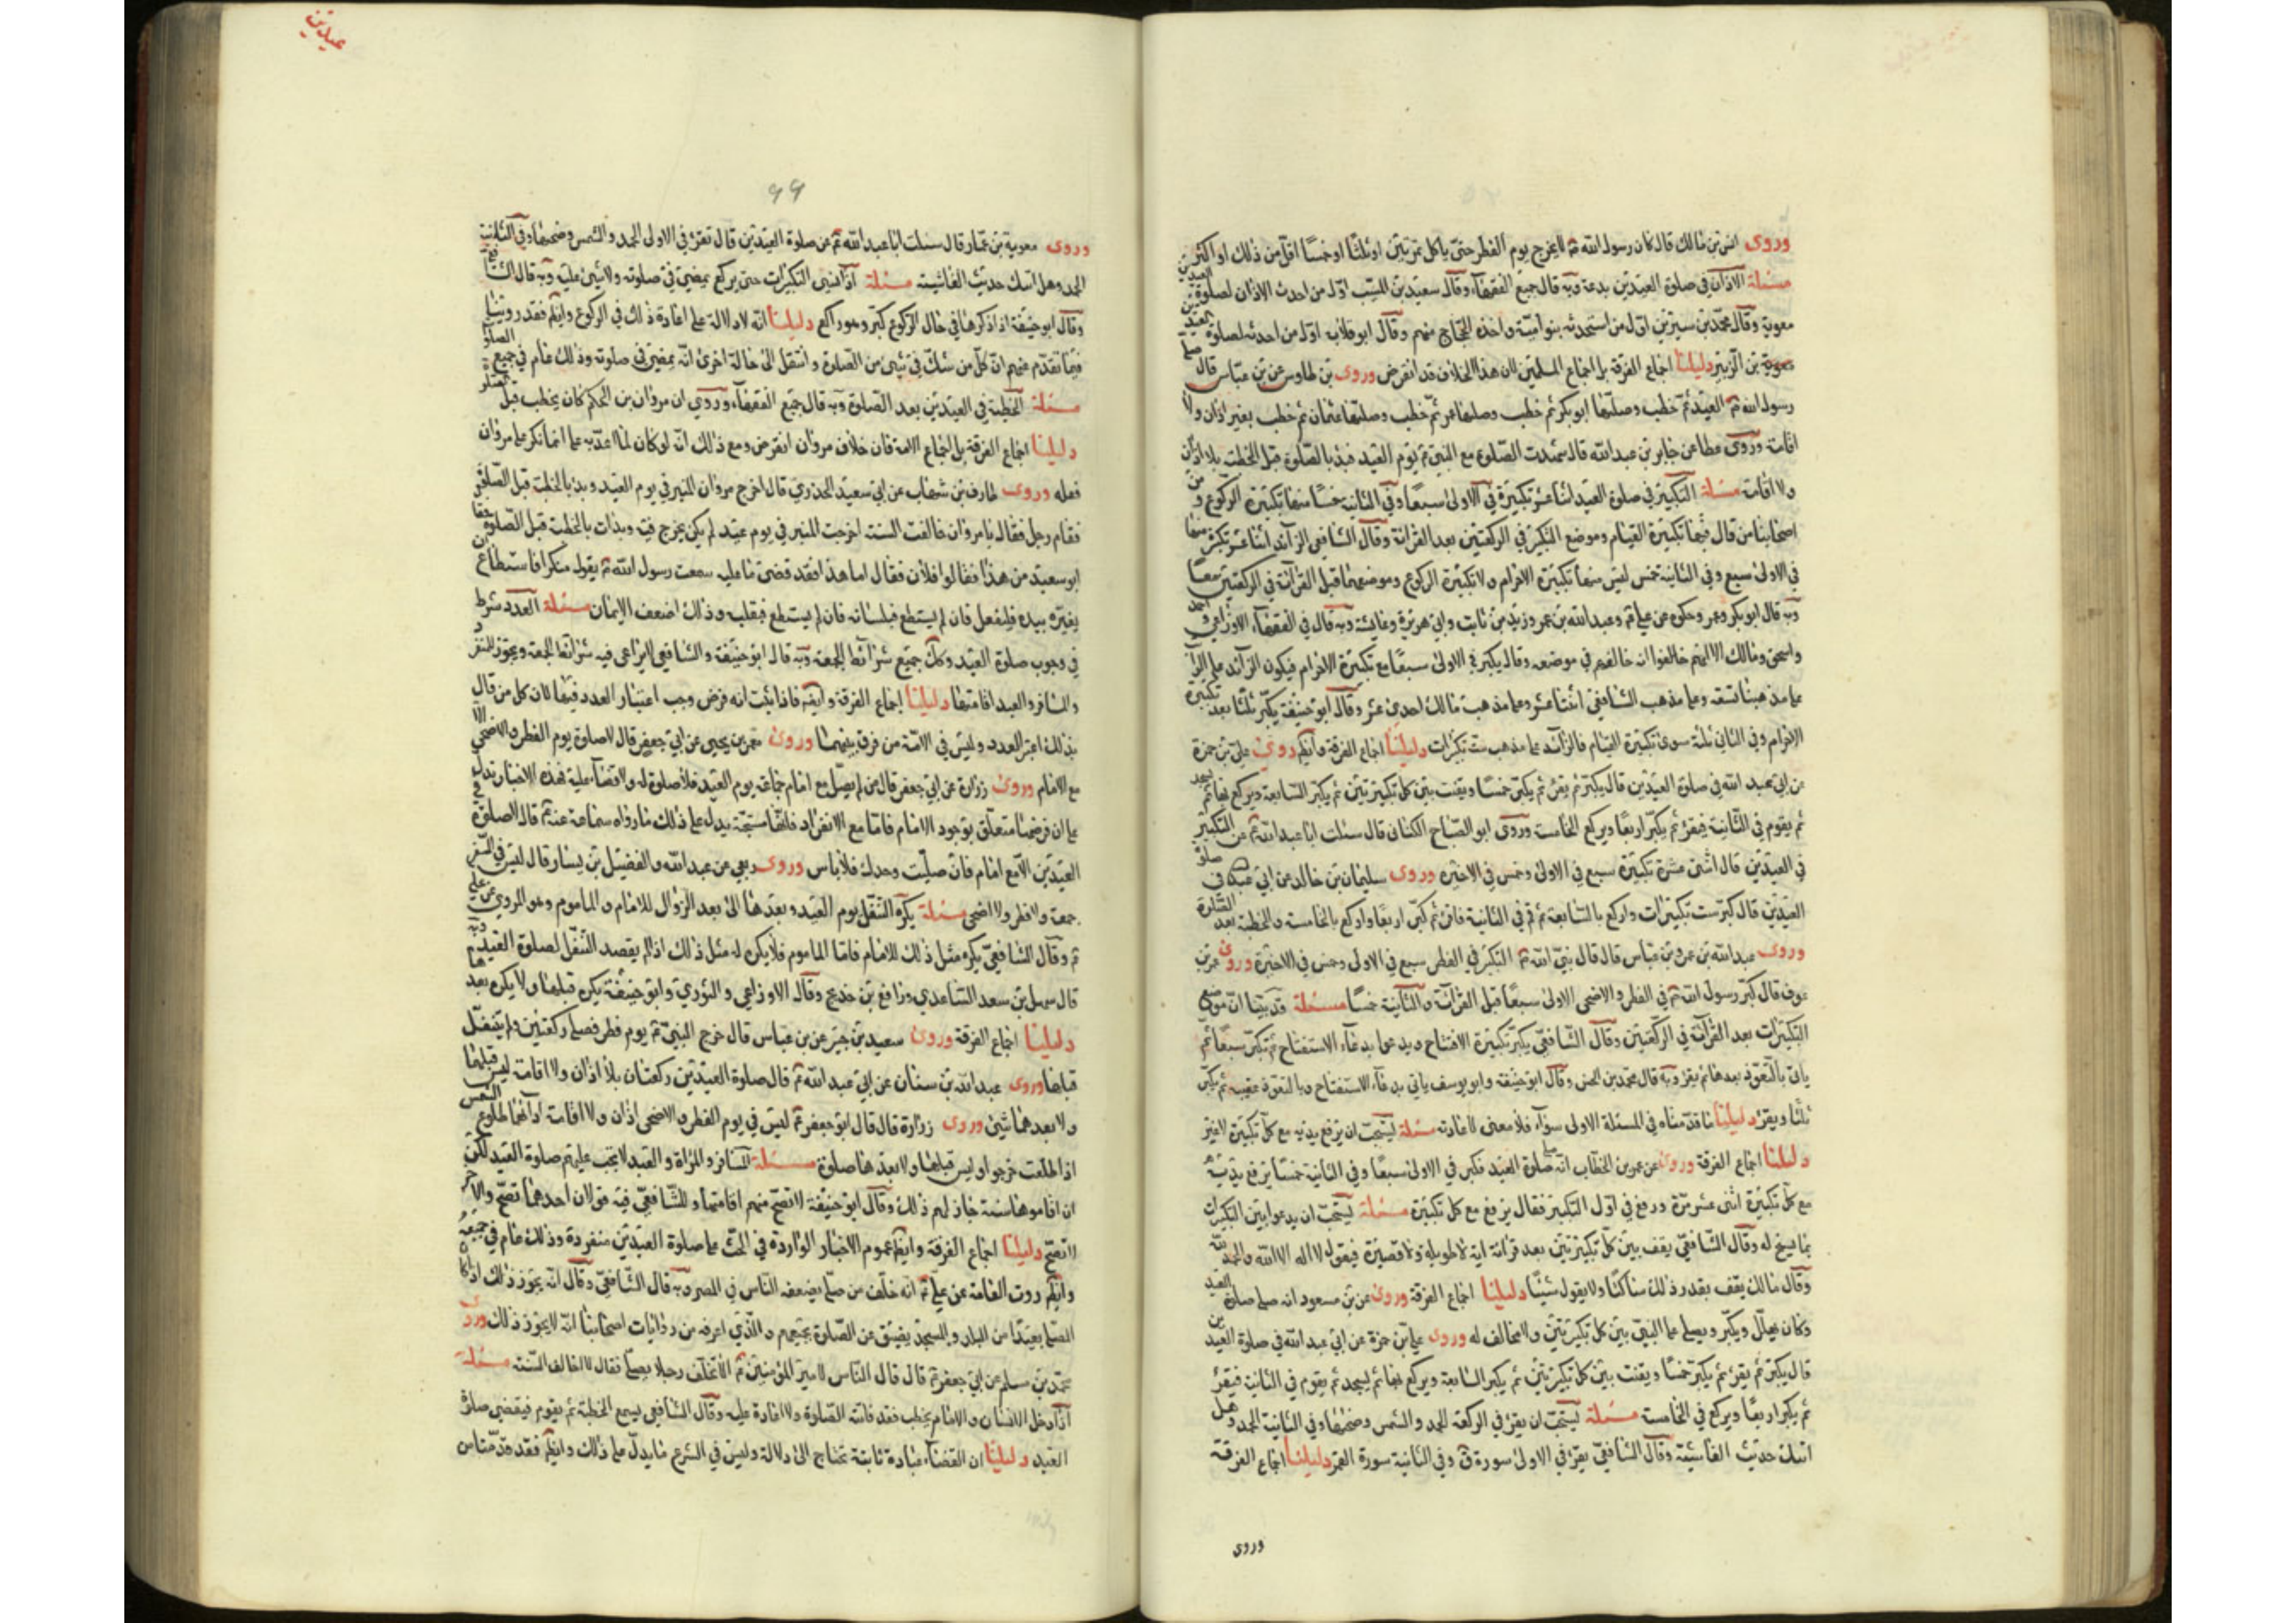 وروى انس بن مالك قال كان رسول الله ص لا يخرج يوم الفطر حتى ياكل تمرتين او ثلثا او خمسا اقل من ذلك او اكثر
مسئلة الاذان في صلوة العيدين بدعة وبه قال جميع الفقهاء وقال سعيد بن المسيب اول من احدث الاذان لصلوة العيدين
معوية وقال محمد بن سيرين اول من استحدثه بنو امية واخذه الحجاج منهم وقال ابو قلابة اول من احدثه لصلوة العيدين
بن الزبير دليلنا اجماع الفرقة بل اجماع المسلمين لان هذا الخلاف قد انقرض وروى بن طاوس عن بن عباس قال صلى
رسول الله ص العيد ثم خطب وصليها ابو بكر ثم خطب وصليها عمر ثم خطب وصليها عثمان ثم خطب بغير اذان ولا
اقامة وروى عطا عن جابر بن عبد الله قال شهدت الصلوة مع النبي ص يوم العيد فبدء بالصلوة قبل الخطبة بلا اذان
ولا اقامة مسئلة التكبير في صلوة العيد اثنا عشر تكبيرة في الاولى سبعا وفي الثانية خمسا منها تكبيرة الركوع ومن
اصحابنا من قال فيها تكبيرة القيام وموضع التكبير في الركعتين بعد القرائة وقال الشافعي الزآئد اثنا عشر تكبيرة منها
في الاولى سبع وفي الثانية خمس ليس منها تكبيرة الاحرام ولا تكبيرة الركوع وموضعها قبل القرآئة في الركعتين معا
وبه قال ابو بكر وعمر وحكوه عن علي ع وعبد الله بن عمر وزيد بن ثابت وابي هريرة وعايشة وبه قال في الفقهاء الاوزاعي واحمد
واسحق ومالك الا انهم خالفوا انه خالفهم في موضعه وقال يكبر في الاولى سبعا مع تكبيرة الاحرام فيكون الزآئد
على مذهبنا تسعة وعلى مذهب الشافعي اثنتا عشر وعلى مذهب مالك احدى عشر وقال ابو حنيفة يكبر ثلثا بعد تكبيرة
الاحرام وفي الثاني ثلثة سوى تكبيرة القيام فالزآئد على مذهب ست تكبيرات دليلنا اجماع الفرقة وايضا روى علي بن حمزة
عن ابي عبد الله في صلوة العيدين قال يكبر ثم يقرء ثم يكبر خمسا ويقنت بين كل تكبيرتين ثم يكبر السابعة ويركع بها ثم يسجد
ثم يقوم في الثانية فيقرء ثم يكبر اربعا ويركع الخامسة وروى ابو الصباح الكناني قال سئلت ابا عبد الله ع عن التكبير
في العيدين قال اثنتى عشرة تكبيرة سبع في الاولى وخمس في الاخيرة وروى سليمان بن خالد عن ابي عبد الله في صلوة
العيدين قال كبر ست تكبيرات واركع بالسابعة ثم قم في الثانية فاقرء ثم كبر اربعا واركع بالخامسة والخطبة بعد الصلوة
وروى عبد الله بن عمرو بن عباس قال قال نبي الله ص التكبير في الفطر سبع في الاولى وخمس في الاخيرة وروى عمر بن
عوف قال كبر رسول الله ص في الفطر والاضحى الاولى سبعا قبل القرآئة والثانية خمسا مسئلة قد بينا ان موضع
التكبيرات بعد القرآئة في الركعتين وقال الشافعي يكبر تكبيرة الافتتاح ويدعوا بدعآء الاستفتاح ثم يكبر سبعا ثم
ياتي بالتعوذ بعدها ثم يقرء وبه قال محمد بن الحسن وقال ابو حنيفة وابو يوسف ياتي بدعآء الاستفتاح وبالتعوذ عقيبه ثم يكبر
ثلثا ويقرء دليلنا ما قدمناه في المسئلة الاولى سوآء فلا معنى لاعادته مسئلة يستحب ان يرفع يديه مع كل تكبيرة لاغير
دليلنا اجماع الفرقة وروى عن عمر بن الخطاب انه صلى صلوة العيد فكبر في الاولى سبعا وفي الثانية خمسا يرفع يديه
مع كل تكبيرة اثنى عشر مرة ورفع في اول التكبير فقال يرفع مع كل تكبيرة مسئلة يستحب ان يدعوا بين التكبيرات
بما يسنح له وقال الشافعي يقف بين كل تكبيرتين بعد قرائة اية لا طويلة ولا قصيرة فيقول لا اله الا الله والحمد لله
وقال مالك يقف بقدر ذلك ساكتا ولا يقول شيئا دليلنا اجماع الفرقة وروى عن بن مسعود انه صلى صلوة العيد
وكان يهلل ويكبر ويصلي على النبي بين كل تكبيرتين ولا مخالف له وروى علي بن حمزة عن ابي عبد الله في صلوة العيدين
قال يكبر ثم يقرء ثم يكبر خمسا ويقنت بين كل تكبيرتين ثم يكبر السابعة ويركع بها ثم يسجد ثم يقوم في الثانية فيقرء
ثم يكبر اربعا ويركع في الخامسة مسئلة يستحب ان يقرء في الركعة الحمد والشمس وضحيها وفي الثانية الحمد وهل
اتيك حديث الغاشية وقال الشافعي يقرء في الاولى سورة ق وفي الثانية سورة القمر دليلنا اجماع الفرقة
وروى
عيدين
99
وروى معوية بن عمار قال سئلت ابا عبد الله ع عن صلوة العيدين قال تقرء في الاولى الحمد والشمس وضحيها وفي الثانية
الحمد وهل اتيك حديث الغاشية مسئلة اذا نسي التكبيرات حتى يركع يمضي في صلوته ولا شيئ عليه وبه قال الشافعي
وقال ابو حنيفة اذا ذكرها في حال الركوع كبر وهو راكع دليلنا انه لا دلالة على اعادة ذلك في الركوع وايضا فقد روينا
فيما تقدم عنهم ان كل من شك في شيئ من الصلوة وانتقل الى حالة اخرى انه يمضي في صلوته وذلك عام في جميع الصلوة
مسئلة الخطبة في العيدين بعد الصلوة وبه قال جميع الفقهآء وروي ان مروان بن الحكم كان يخطب قبل
دليلنا اجماع الفرقة بل اجماع الامة فان خلاف مروان انقرض ومع ذلك انه لو كان لما اعتد به على انما انكر على مروان
فعله وروى طارف بن شهاب عن ابي سعيد الخدري قال اخرج مروان المنبر في يوم العيد وبدء بالخطبة قبل الصلوة
فقام رجل فقال يا مروان خالفت السنة اخرجت المنبر في يوم عيد لم يكن يخرج فيه وبدات بالخطبة قبل الصلوة فقال
ابو سعيد من هذا فقالوا فلان فقال اما هذا فقد قضى ما عليه سمعت رسول الله ص يقول منكرا فاستطاع ان
يغيره بيده فليفعل فان لم يستطع فبلسانه فان لم يستطع فبقلبه وذلك اضعف الايمان مسئلة العدد شرط
في وجوب صلوة العيد وكك جميع شرآئط الجمعة وبه قال ابو حنيفة والشافعي لايراعى فيه شرآئط الجمعة ويجوز للمنفرد
والمسافر والعبد اقامتها دليلنا اجماع الفرقة وايضا فاذا ثبت انه فرض وجب اعتبار العدد فيها لان كل من قال
بذلك اعتبر العدد وليس في الامة من فرق بينهما وروى معمر بن يحيى عن ابي جعفر قال لا صلوة يوم الفطر والاضحى الا
مع الامام وروى زرارة عن ابي جعفر قال من لم يصل مع امام جماعة يوم العيد فلا صلوة له ولا قضآء عليه فهذه الاخبار تدل
على ان فرضها متعلق بوجود الامام فاما مع الانفراد فانها مستحبة يدل على ذلك ما رواه سماعة عنه ع قال لا صلوة في
العيدين الا مع امام فان صليت وحدك فلا باس وروى ربعي عن عبد الله والفضيل بن يسار قال ليس في السفر
جمعة ولا فطر ولا اضحى مسئلة يكره التنفل يوم العيد وبعدها الى بعد الزوال للامام والماموم وهو المروي عن علي
ع وقال الشافعي يكره مثل ذلك للامام فاما الماموم فلا يكره له مثل ذلك اذا لم يقصد التنفل لصلوة العيد وبه
قال سهل بن سعد الساعدي ورافع بن خديج وقال الاوزاعي والثوري وابو حنيفة يكره قبلها ولا يكره بعدها
دليلنا اجماع الفرقة وروى سعيد بن جبير عن بن عباس قال خرج النبي ص يوم فطر فصلى ركعتين ولم يتنفل
قبلها وروى عبد الله بن سنان عن ابي عبد الله ع قال صلوة العيدين ركعتان بلا اذان ولا اقامة ليس قبلهما
ولا بعدهما شيئ وروى زرارة قال قال ابو جعفر ع ليس في يوم الفطر والاضحى اذان ولا اقامة اذانهما طلوع الشمس
اذا طلعت خرجوا وليس قبلها ولا بعدها صلوة مسئلة المسافر والمراة والعبد لا يجب عليهم صلوة العيد لكن
ان اقاموها سنة جاز لهم ذلك وقال ابو حنيفة لا تصح منهم اقامتها وللشافعي فيه قولان احدهما تصح والاخر
لا تصح دليلنا اجماع الفرقة وايضا عموم الاخبار الواردة في الحث على صلوة العيدين منفردة وذلك عام في جميعهم
وايضا روت العامة عن علي ع انه خلف من صلى بضعفة الناس في المصر وبه قال الشافعي وقال انه يجوز ذلك اذا كان
المصلى بعيدا من البلد والمسجد يضيق عن الصلوة بجميعهم والذي اعرفه من روايات اصحابنا انه لا يجوز ذلك وروى
محمد بن مسلم عن ابي جعفر ع قال قال الناس لامير المؤمنين ع الا تخلف رجلا يصلي فقال لا اخالف السنة مسئلة
اذا دخل الانسان والامام يخطب فقد فاتته الصلوة ولا اعادة عليه وقال الشافعي يسمع الخطبة ثم يقوم فيقضي صلوة
العيد دليلنا ان القضآء عبادة ثابتة تحتاج الى دلالة وليس في الشرع ما يدل على ذلك وايضا فقد قدمنا من